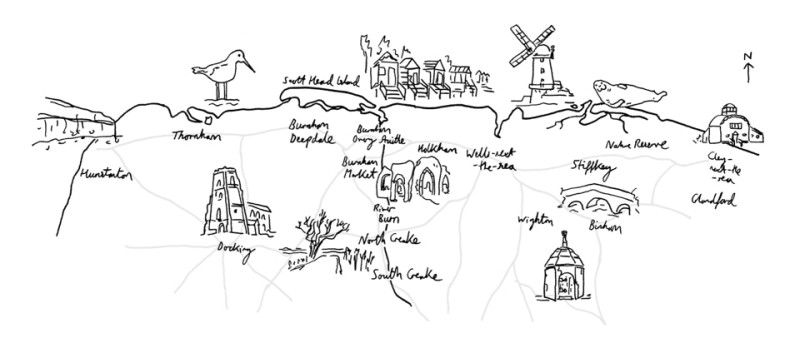 N
Scott Head Island
Thornham
Burnham
Deepdale
Burnham
Overy Staithe
Holkham
Wells-next
-the-sea
Nature Reserve
Cley-
next-the
-sea
Hunstanton
Burnham
Market
Stiffkey
Glandford
River
Burn
Wighton
Binham
Docking
North Creake
South Creake